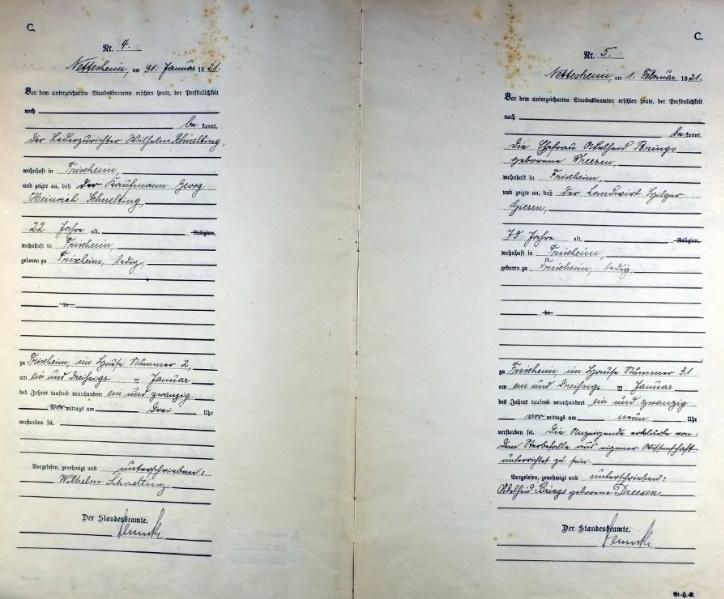 C.
Nr. 4.
Nettesheim, am 31. Januar 1921.
Vor dem unterzeichneten Standesbeamten erschien heute, der Persönlichkeit
nach
be kannt,
der Lederzurichter Wilhelm Schnelting,
wohnhaft in Frixheim,
und zeigte an, daß der Kaufmann Georg
Heinrich Schnelting,
22 Jahre a. Religion,
wohnhaft in Frixheim,
geboren zu Frixheim, ledig,
zu Frixheim, im Hause Nummer 2,
am ein und dreißigs = Januar
des Jahres tausend neunhundert ein und zwanzig
vor mittags um drei Uhr
verstorben sei.
Vorgelesen, genehmigt und unterschrieben:
Wilhelm Schnelting
Der Standesbeamte.
C.
Nr. 5.
Nettesheim, am 1. Februar 1921.
Vor dem unterzeichneten Standesbeamten erschien heute, der Persönlichkeit
nach
be kannt,
die Ehefrau Adelheid Brings
geborene Dreesen,
wohnhaft in Frixheim,
und zeigte an, daß der Landwirt
Giesen,
Jahre alt, Religion,
wohnhaft in Frixheim,
geboren zu Frixheim, ledig,
zu Frixheim im Hause Nummer 31
am ein und dreißigs = Januar
des Jahres tausend neunhundert ein und zwanzig
vor mittags um neun Uhr
verstorben sei. Die Anzeigende erklärte von
dem Sterbefalle aus eigener Wissenschaft
unterrichtet zu sein.
Vorgelesen, genehmigt und unterschrieben:
Adelheid Brings geborene Dreesen
Der Standesbeamte.